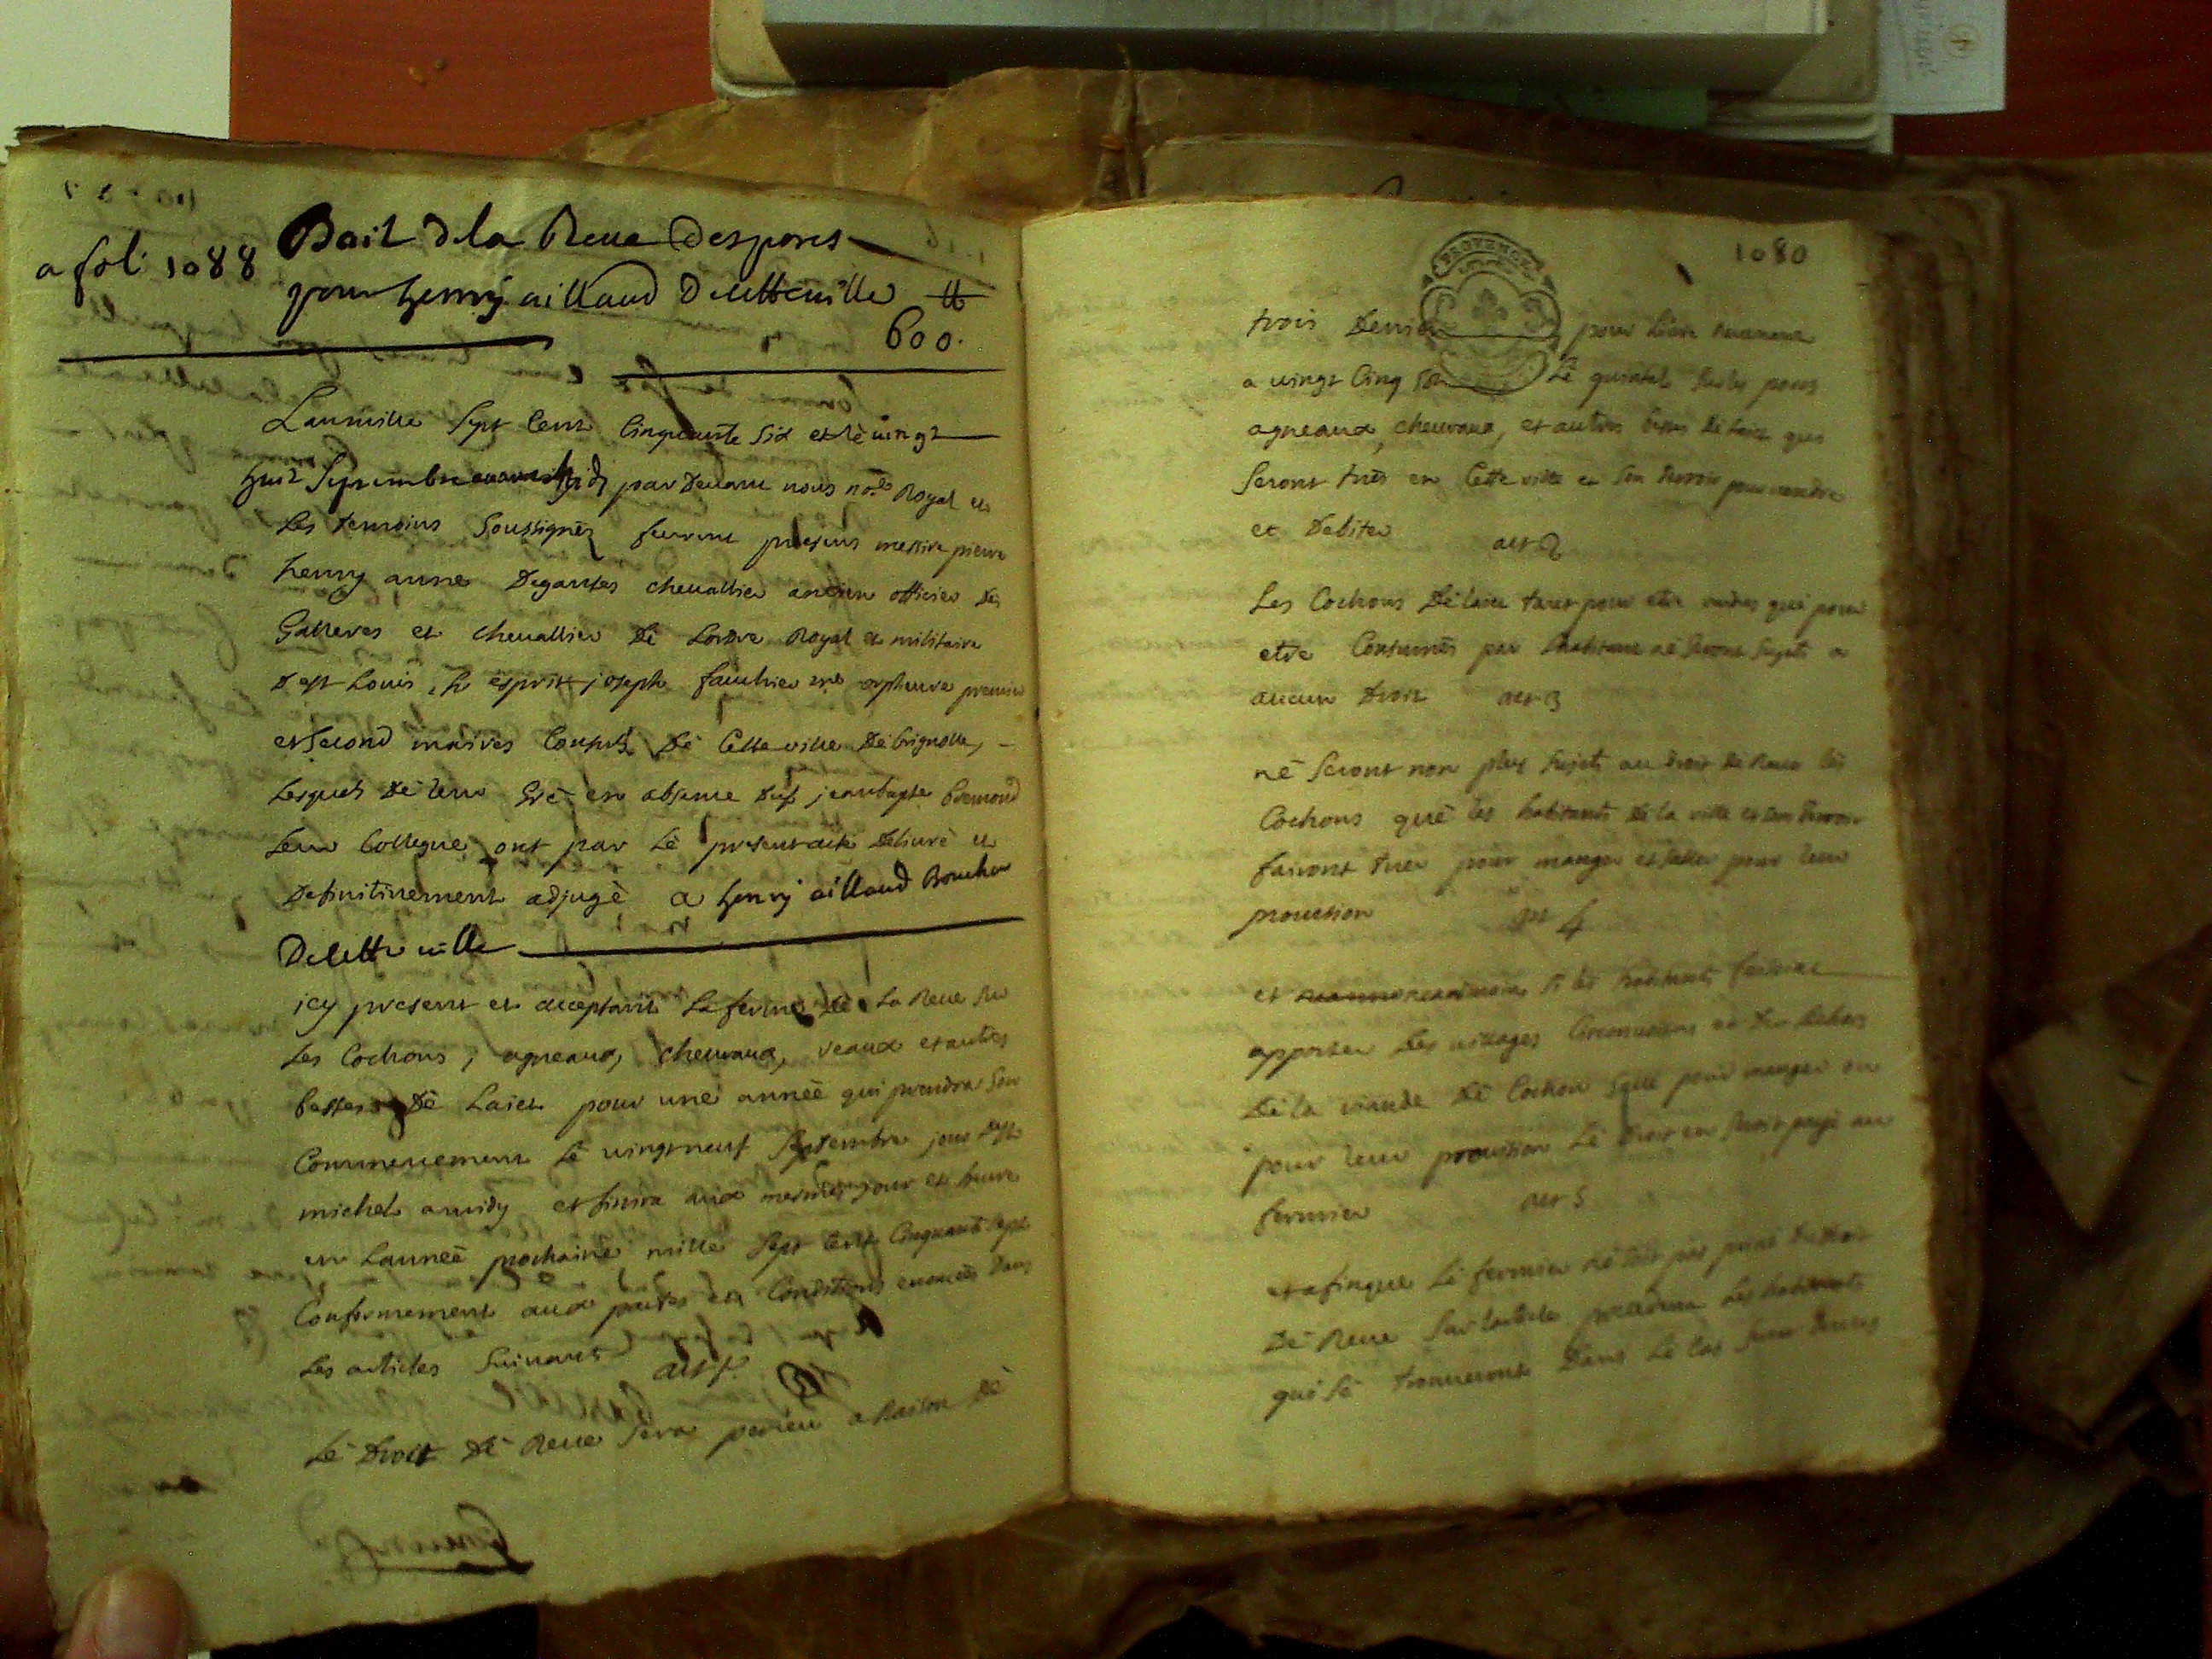 a fol. 1088
Bail dela Reue des porcs
pour henry aillaud de cette ville ₶
600.
Lan mille sept cent cinquante six et lè vingt
huit septembre avant midy par devant nous no.re Royal et
les temoins soussignés furent presens messire pierre
henry anne Degantes chevallier ancien officier des
Galleres et chevallier dè Lordre Royal et militaire
de st Louis, Sr esprit joseph fauchier me orpheuvre premier
et second maires Consuls de Cette ville dè brignolle,
Lesquels dè leur Grè en absence du sr jean bapte bremond
leur Collegue ont par Lè present acte Delivrè et
Definitivement adjugè a henry aillaud Boucher
De cette ville
icy present et acceptant La ferme dè La Reue sur
Les Cochons, agneaux, chevraux, veaux et autres
bestes dè Laict pour une année qui prendra son
Commencement Lè vingt neuf Septembre jour de st
michel a midy et finira aux mesmes jour et heure
en Lanneè prochaine mille sept cent Cinquante sept
Conformement aux pactes et Conditions enoncés dans
Les articles suivants art 1er
Lè Droit dè Reue sera perceu a Raison dè
1080
PROVENCE
trois Deniers pour Livre
a vingt Cinq sols Lè quintal sur les porcs
agneaux, chevraux, et autres betes de laict qui
seront tués en Cette ville et son terroir pour vendre
et Debiter art 2
Les Cochons de laict tant pour etre vendus que pour
etre Consumés par Lhabitant nè seront sujets a
aucun Droit art 3
nè seront non plus sujets au droit de Reue les
Cochons què les habitants de la ville et son terroir
fairont tuer pour manger et saller pour leur
provision art 4
et neanmoins si les habitants faisoint
apporter des villages Circonvoisins et du dehors
dè la viande dè Cochon Sallé pour manger ou
pour leur provision Lè droit en seroit payé au
fermier art 5
et afinque Lè fermier nè soit pas privé du droit
dè Reue sur larticle precedent Les habitants
qui sè trouveront dans Lè Cas seront tenus